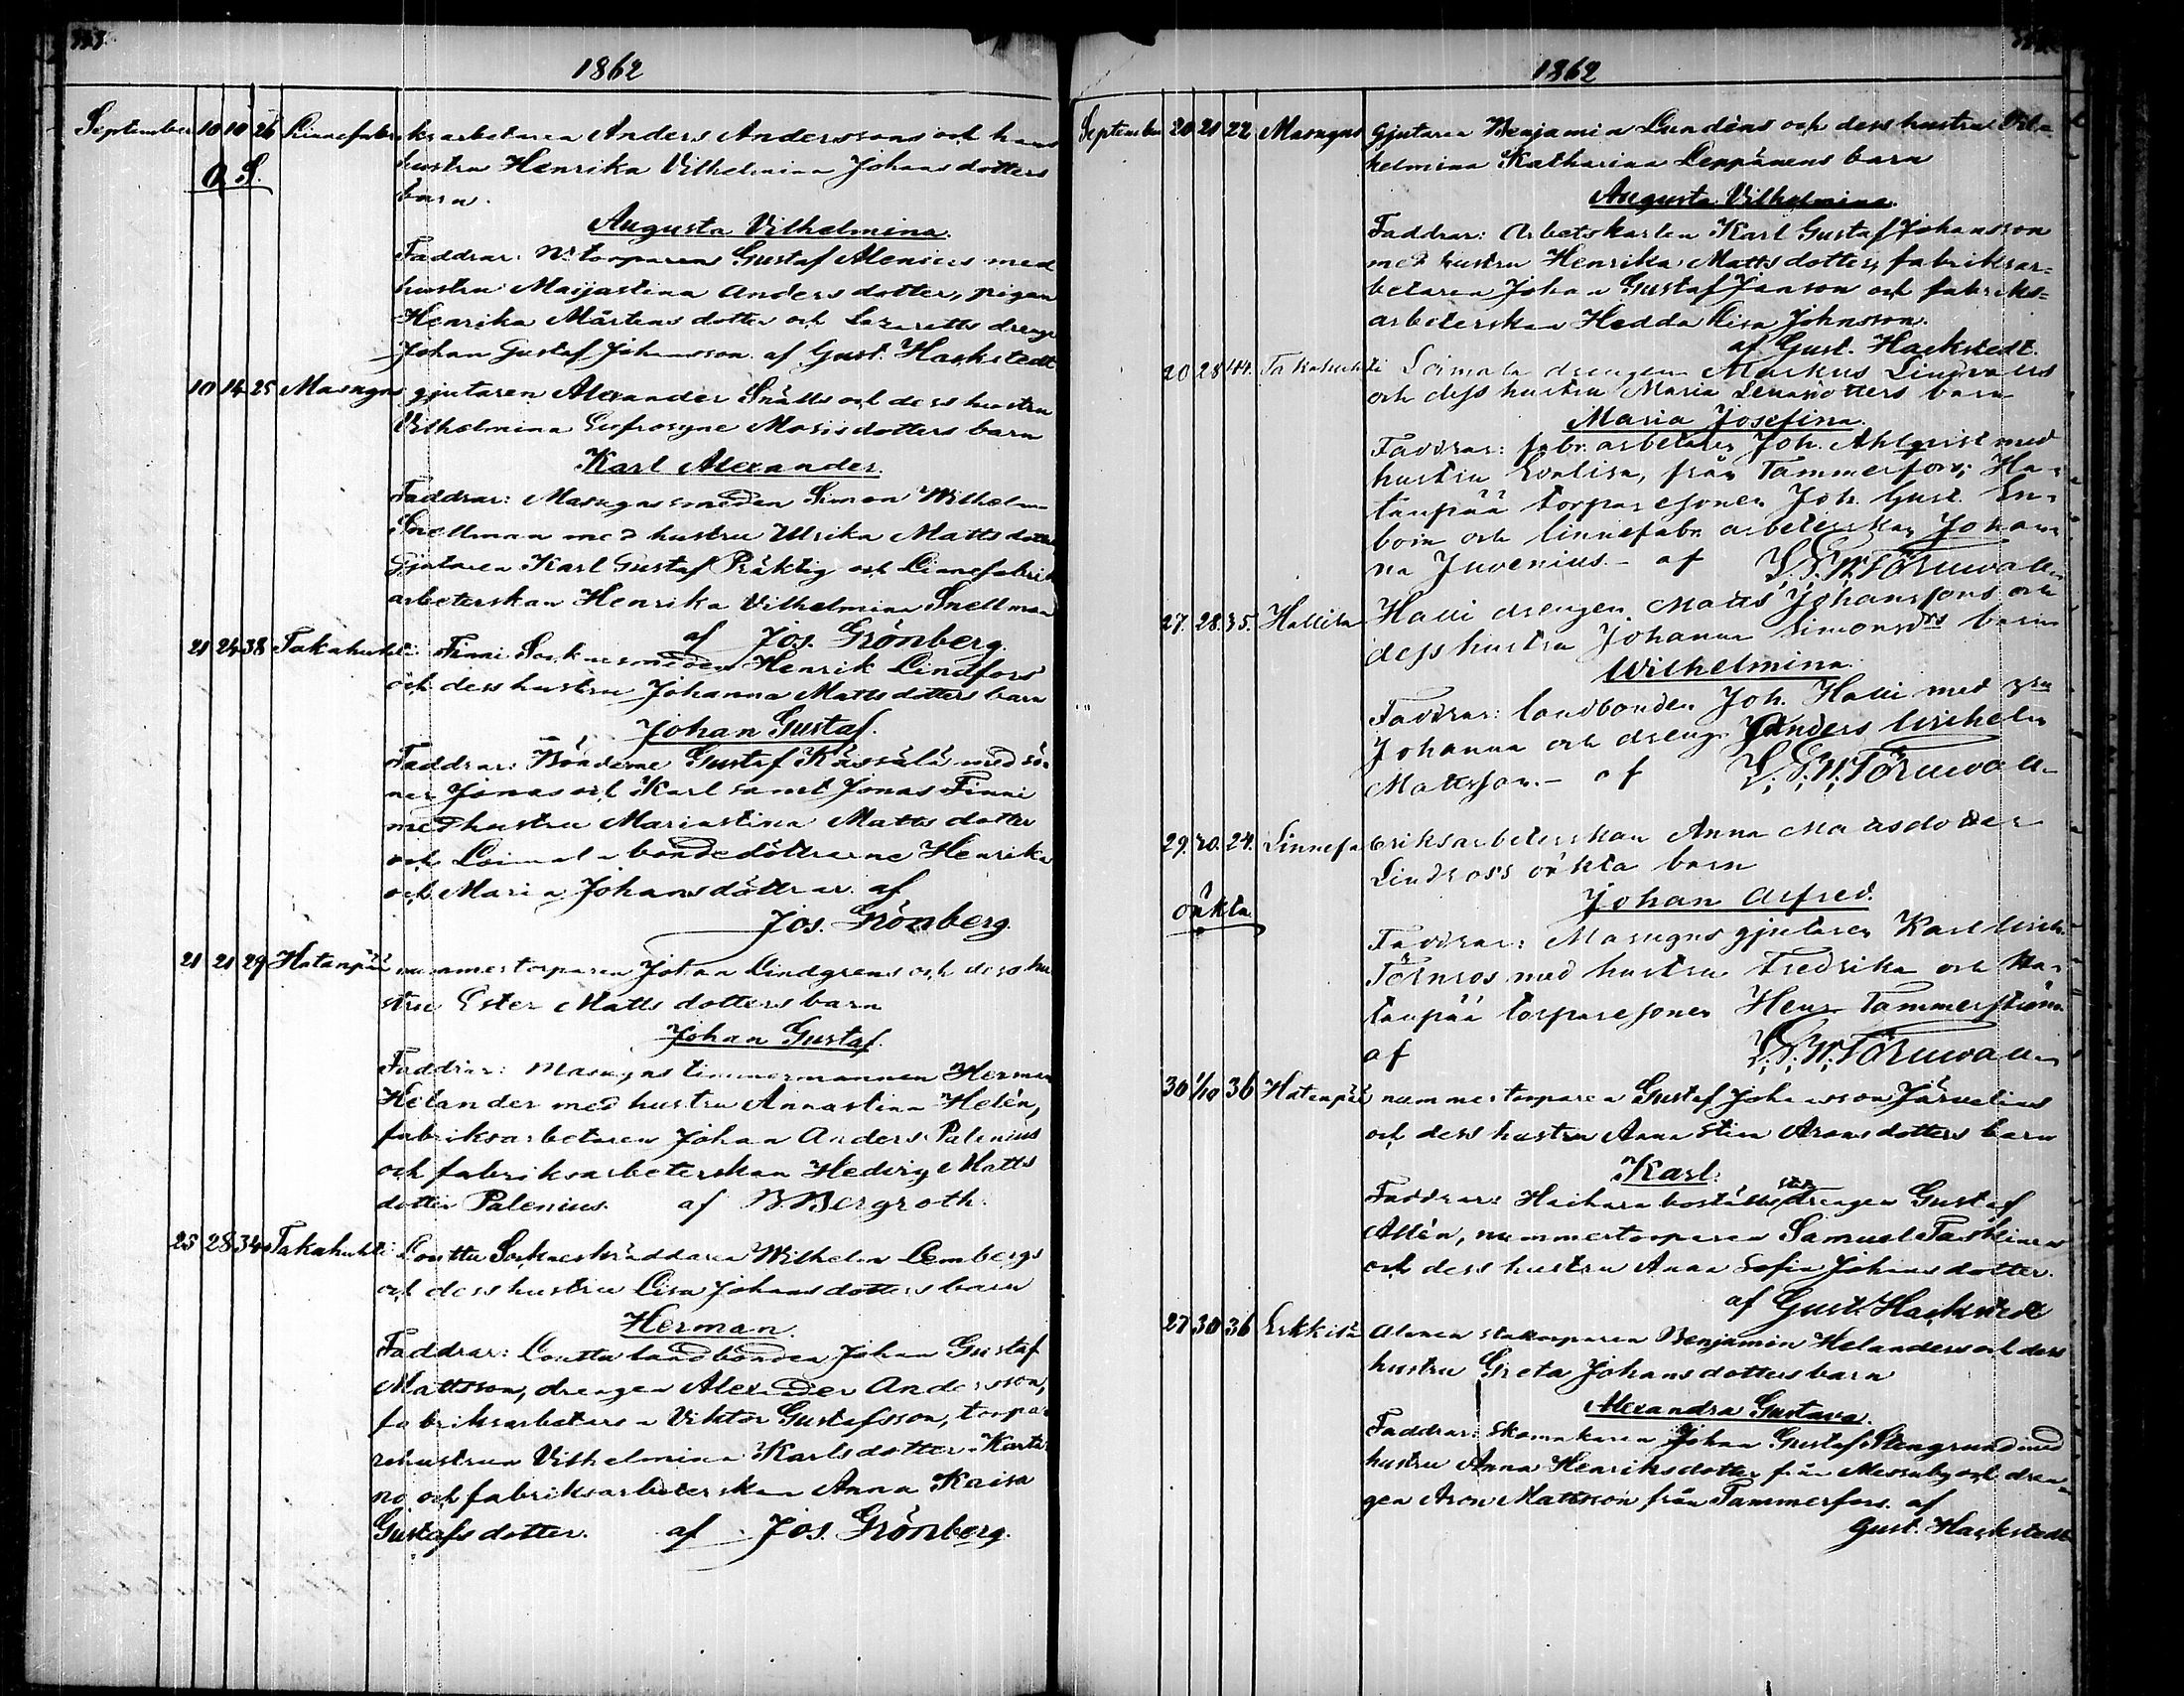 1862
September 10 10 26 Linnefabriksarbetaren Anders Anderssons och hans
O S.
hustru Henrika Vilhelmina Johansdotters
barn.
Augusta Vilhelmina.
Faddrar: N:torparen Gustaf Alenius med
hustru Maijastina Andersdotter, pigan
Henrika Mårtensdotter och Lazaretts dreng
Johan Gustaf Johansson. af Gust. Hackstedt
10 14 25 Masugns gjutaren Alexander Snälls och dess hustru
Vilhelmina Eufrosyne Mosisdotters barn
Karl Alexander.
Faddrar: Masugnssmeden Simon Wilhelm
Snellman med hustru Ulrika Mattsdotter
Gjutaren Karl Gustaf Präktig och Linnefabriks
arbeterskan Henrika Vilhelmina Snellman
af Jos. Grönberg.
21 24 38 Takahuhti Finni Socknesmeden Henrik Lindfors
och dess hustru Johanna Mattsdotters barn
Johan Gustaf.
Faddrar: Bönderne Gustaf Kässälä med sö-
ner Jonas och Karl samt Jonas Finni
med hustru Mariastina Mattsdotter
och Loimala bondedöttrarne Henrika
och Maria Johansdöttrar. af
Jos. Grönberg.
21 21 29 Hatanpää nummertorparen Johan Lindgrens och dess hu
stru Ester Mattsdotters barn
Johan Gustaf.
Faddrar: Masugns timmermannen Herman
Helander med hustru Annastina Helén,
fabriksarbetaren Johan Anders Palenius
och fabriksarbeterskan Hedvig Matts
dotter Palenius. af B. Bergroth.
25 28 34 Takahuhti Louttu Sockneskräddaren Wilhelm Lembergs
och dess hustru Lisa Johansdotters barn
Herman.
Faddrar: Louttu landbonden Johan Gustaf
Mattsson, drengen Alexander Andersson,
fabriksarbetaren Viktor Gustafsson, torpa-
rehustrun Vilhelmina Karlsdotter Karta
no och fabriksarbeterskan Anna Kaisa
Gustafsdotter. af Jos. Grönberg.
1862
September 20 21 22 Masugns Gjutaren Benjamin Lundéns och dess hustru Vil-
helmina Katharina Leppänens barn
Augusta Vilhelmina.
Faddrar: Arbetskarlen Karl Gustaf Johansson
med hustru Henrika Mattsdotter, fabriksar-
betaren Johan Gustaf Janson och fabriks-
arbeterskan Hedda Lisa Johnsson.
af Gust. Hackstedt.
20 28 44. Takahuhti Loimala drengen Markus Lindvalls
och dess hustru Maria Lenasdotters barn
Maria Josefina.
Faddrar: fabr. arbetaren Joh. Ahlqvist med
hustru Evalisa, från Tammerfors; Ha-
tanpää torparesonen Joh. Gust. En-
bom och linnefabr. arbeterskan Johan-
na Juvenius. - af L. E. W. Törnwall
27. 28. 35. Hallila Halli drengen Matts Johanssons och
dess hustru Johanna Simonsdrs barn
Wilhelmina.
Faddrar: landbonden Joh. Halli med hru
Johanna och dreng. Anders Wilhelm
Mattsson. - af L. E. W. Törnwall
29. 30. 24. Linnefabriksarbeterskan Anna Matsdotter
Lindroos oäkta barn
oäkta
Johan Alfred.
Faddrar: Masugns gjutaren Karl Wilh.
Törnros med hustru Fredrika och Ha-
tanpää torparesonen Henr. Tammerström
af L. E. W. Törnwall
30 1/10 36 Hatanpää nummertorparen Gustaf Johansson Järvelins
och dess hustru Anna Stina Aronsdotters barn
Karl.
Faddrar: Haihara boställsdrengen Gustaf
Allén, nummertorparen Samuel Taskinen
och dess hustru Anna Sofia Johansdotter.
af Gust. Hackstedt
27 30 36 Erkkilä Alanen torparen Benjamin Helanders och dess
hustru Greta Johansdotters barn
Alexandra Gustava.
Faddrar: Skomakaren Johan Gustaf Stengrund med
hustru Anna Henriksdotter från Messuby och dren-
gen Aron Mattsson från Tammerfors. af
Gust. Hackstedt